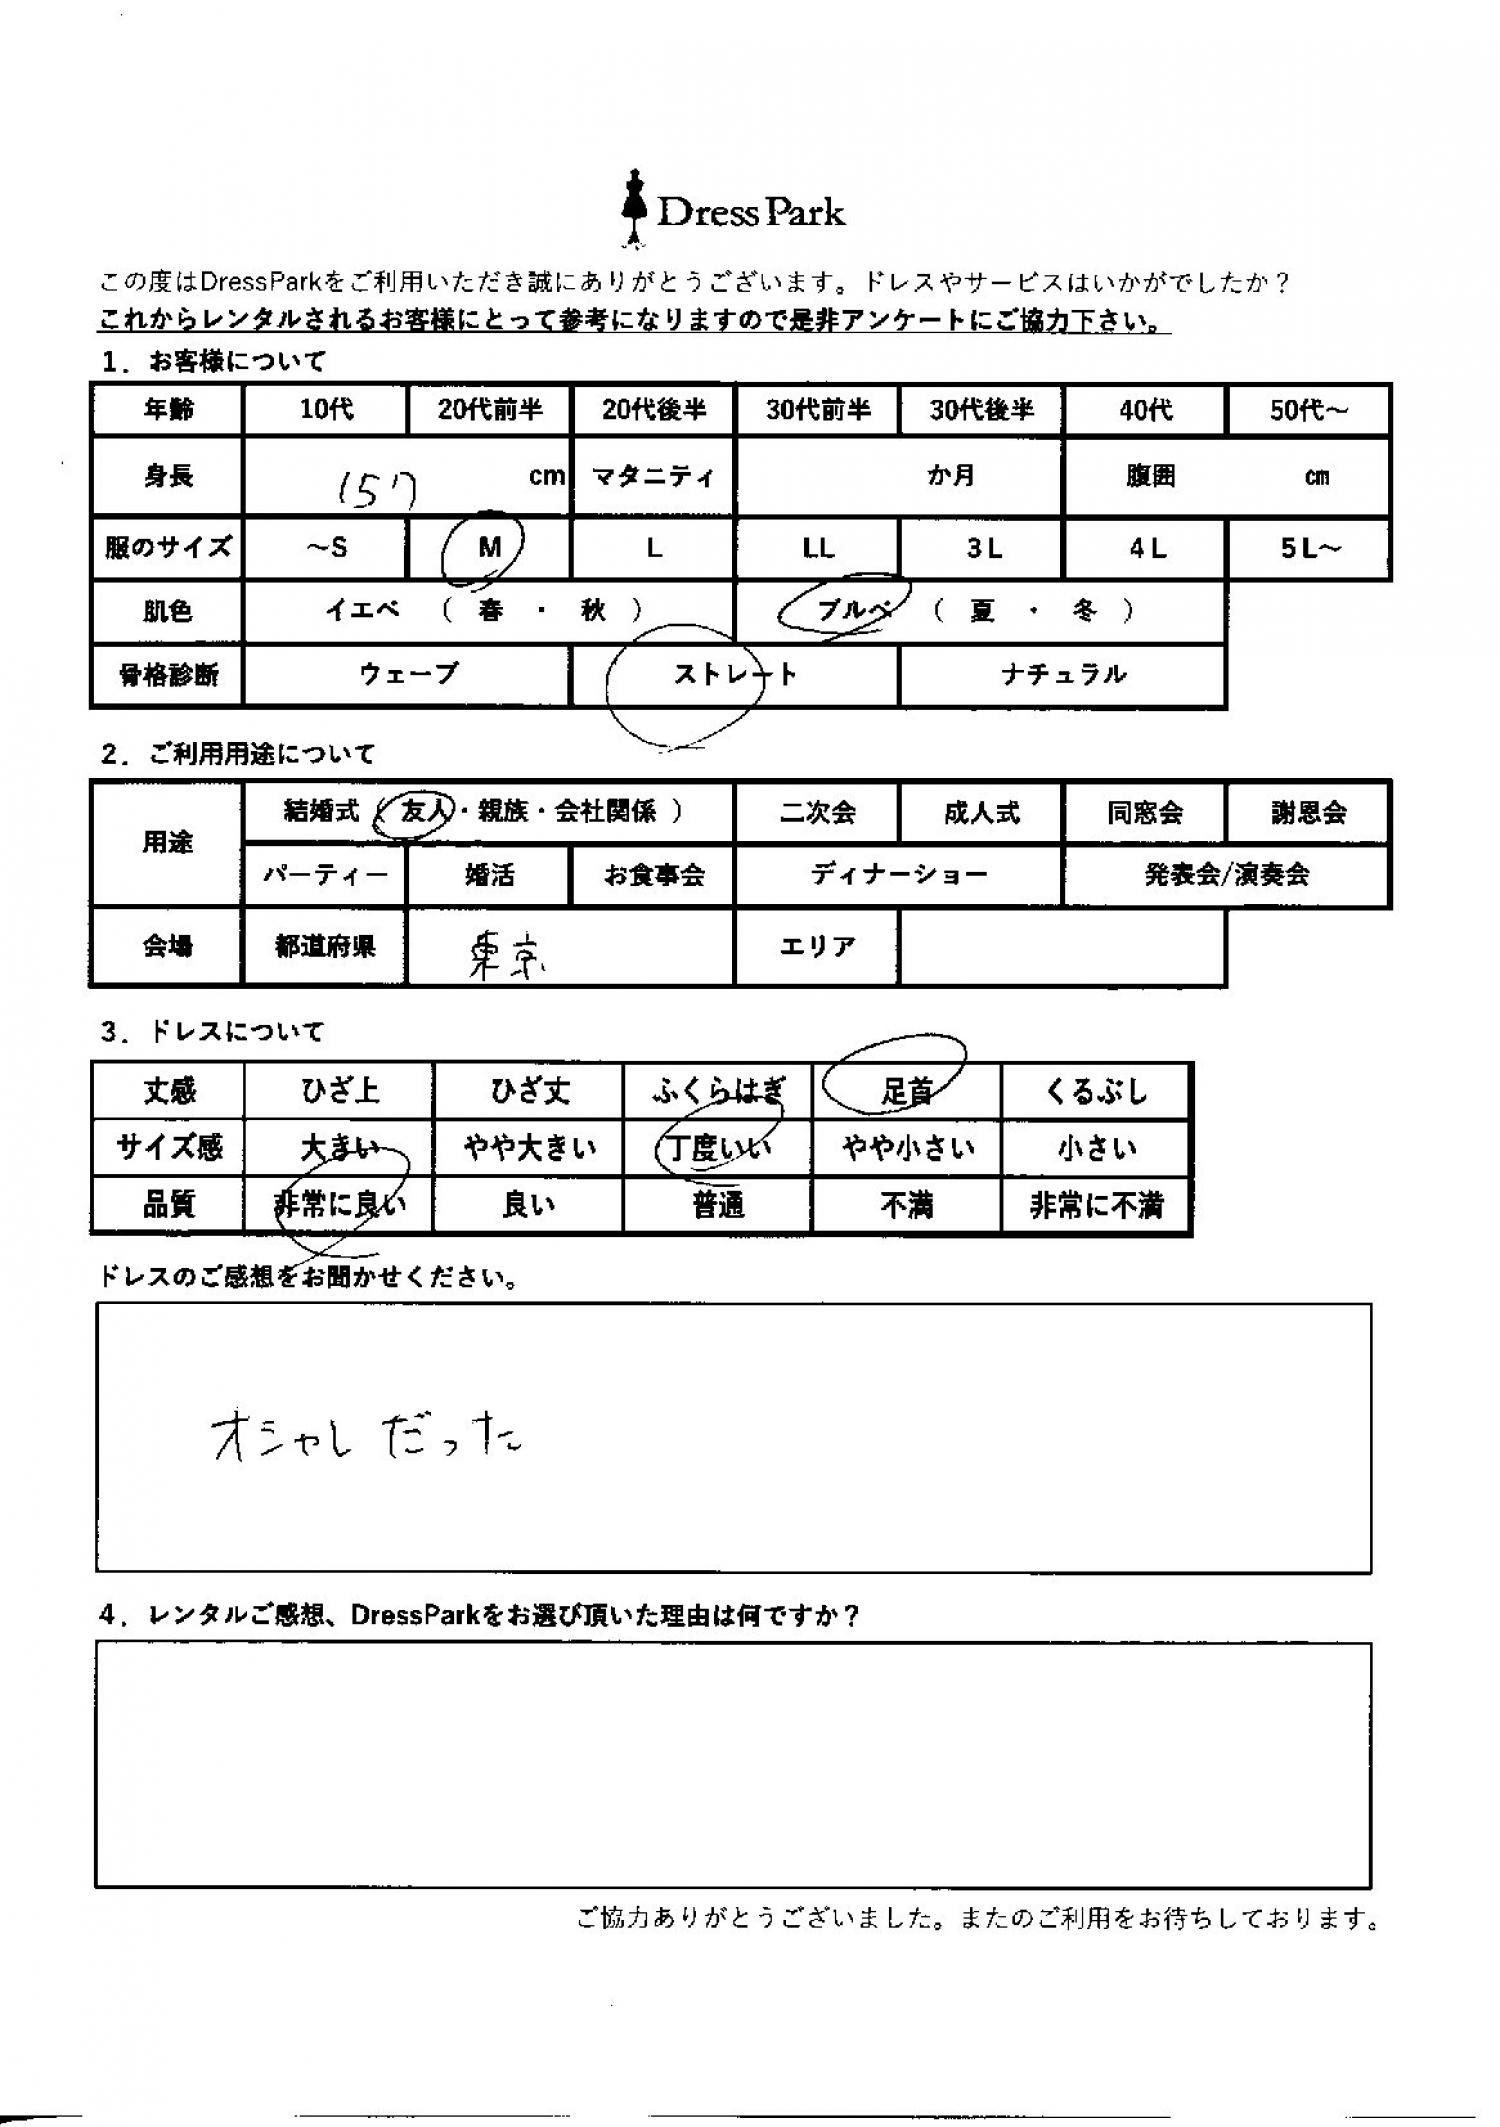 Dress Park
この度はDressParkをご利用いただき誠にありがとうございます。ドレスやサービスはいかがでしたか？
これからレンタルされるお客様にとって参考になりますので是非アンケートにご協力下さい。
1．お客様について
年齢 10代 20代前半 20代後半 30代前半 30代後半 40代 50代～
身長 157 cm マタニティ か月 腹囲 cm
服のサイズ ～S M L LL 3L 4L 5L～
肌色 イエベ （ 春 ・ 秋 ） ブルベ （ 夏 ・ 冬 ）
骨格診断 ウェーブ ストレート ナチュラル
2．ご利用用途について
用途 結婚式（ 友人・親族・会社関係 ） 二次会 成人式 同窓会 謝恩会
パーティー 婚活 お食事会 ディナーショー 発表会/演奏会
会場 都道府県 東京 エリア
3．ドレスについて
丈感 ひざ上 ひざ丈 ふくらはぎ 足首 くるぶし
サイズ感 大きい やや大きい 丁度いい やや小さい 小さい
品質 非常に良い 良い 普通 不満 非常に不満
ドレスのご感想をお聞かせください。
オシャレだった
4．レンタルご感想、DressParkをお選び頂いた理由は何ですか？
ご協力ありがとうございました。またのご利用をお待ちしております。